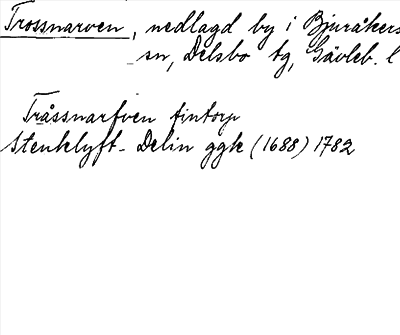 Trossnarven, nedlagd by i Bjuråkers
sn, Delsbo tg, Gävleb. l
Tråssnarfven fintorp
Stenklyft- Delin ggk (1688) 1782